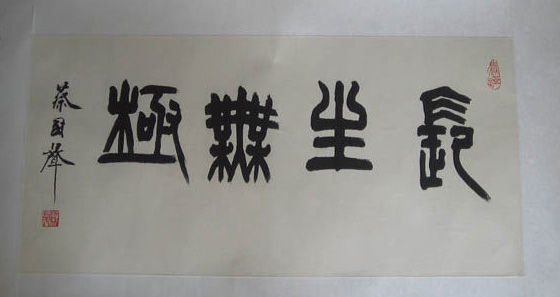 長生無極
蔡国聲